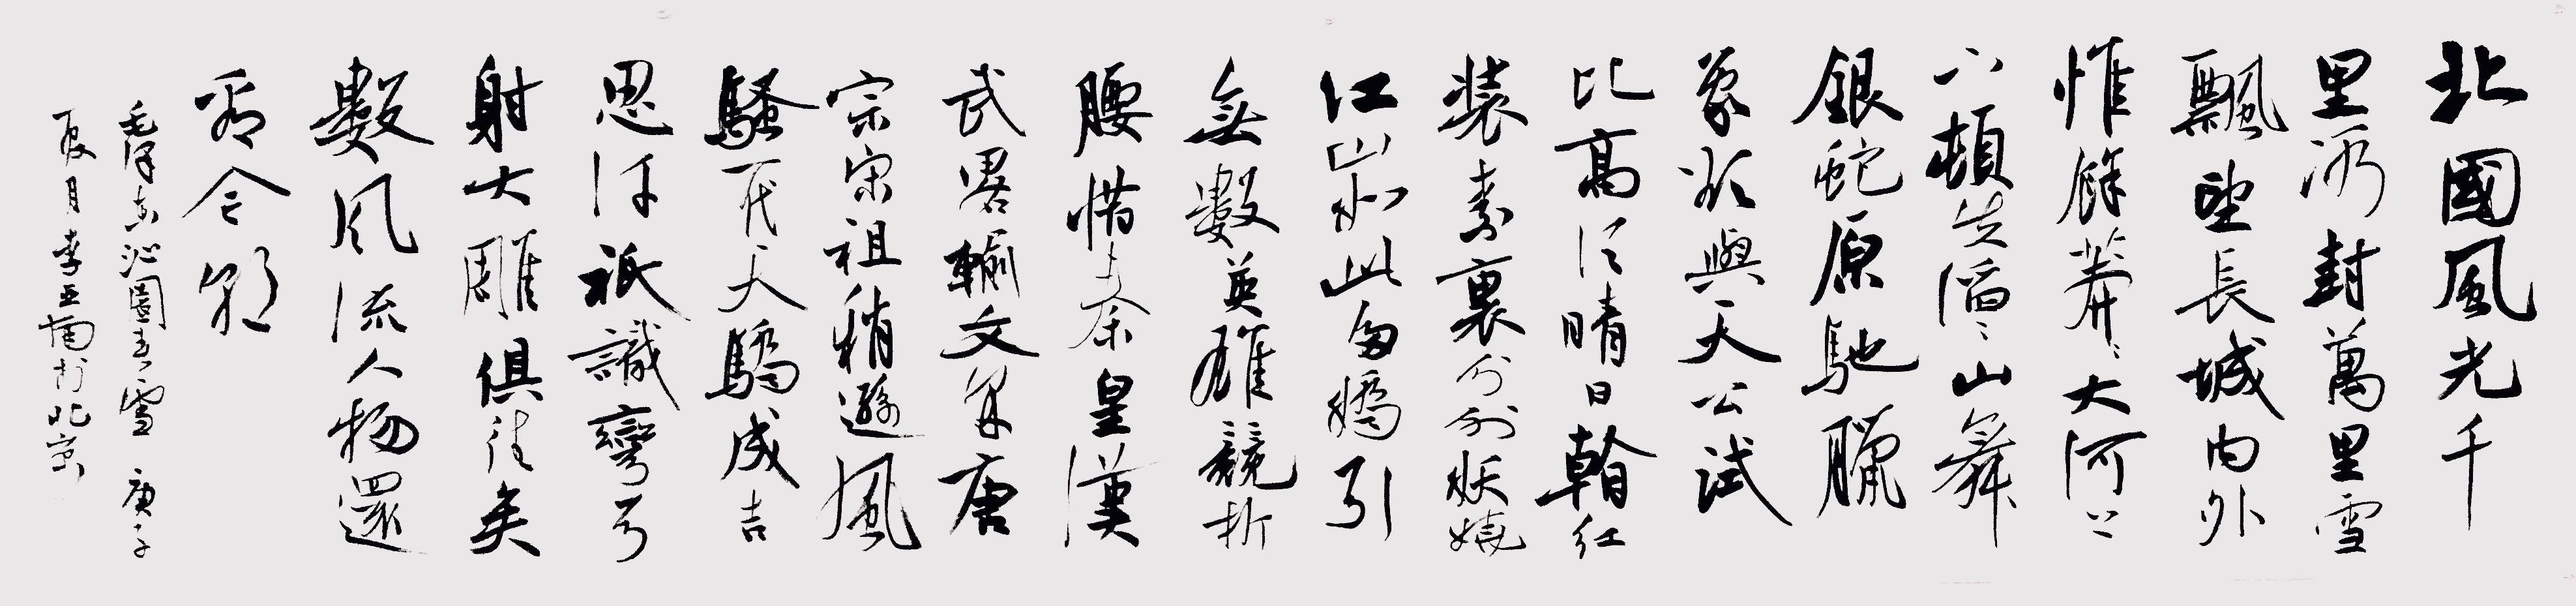 北國風光千
里冰封萬里雪
飄望長城内外
惟餘莽〻大河上
下頓失滔〻山舞
銀蛇原馳臘
象欲與天公試
比高須晴日看红
裝素裹分外妖嬈
江山如此多嬌引
無數英雄競折
腰惜秦皇漢
武畧輸文采唐
宗宋祖稍遜風
騷一代天驕成吉
思汗祇識彎弓
射大雕俱往矣
數風流人物還
看今朝
毛澤東沁園春雪 庚子
夏月李於北京